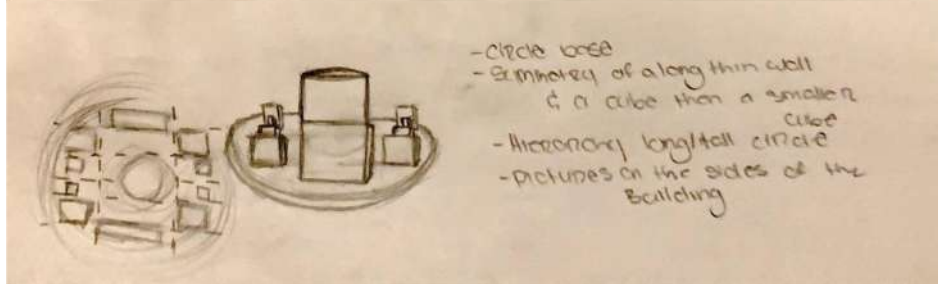 - Circle base
- Symmetry of a long thin wall
& a cube then a smaller
cube
- Hierarchy long/tall circle
- pictures on the sides of the
Building